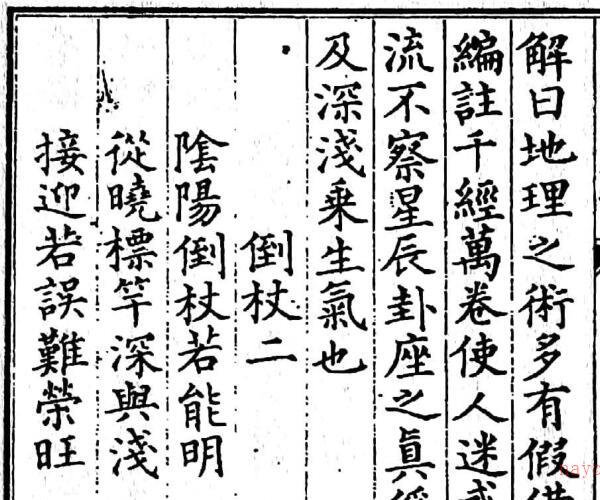 解曰地理之術多有假
編註千經萬卷使人迷
流不察星辰卦座之眞
及深淺乗生氣也
倒杖二
陰陽倒杖若能明
從曉標竿深與淺
接迎若誤難榮旺